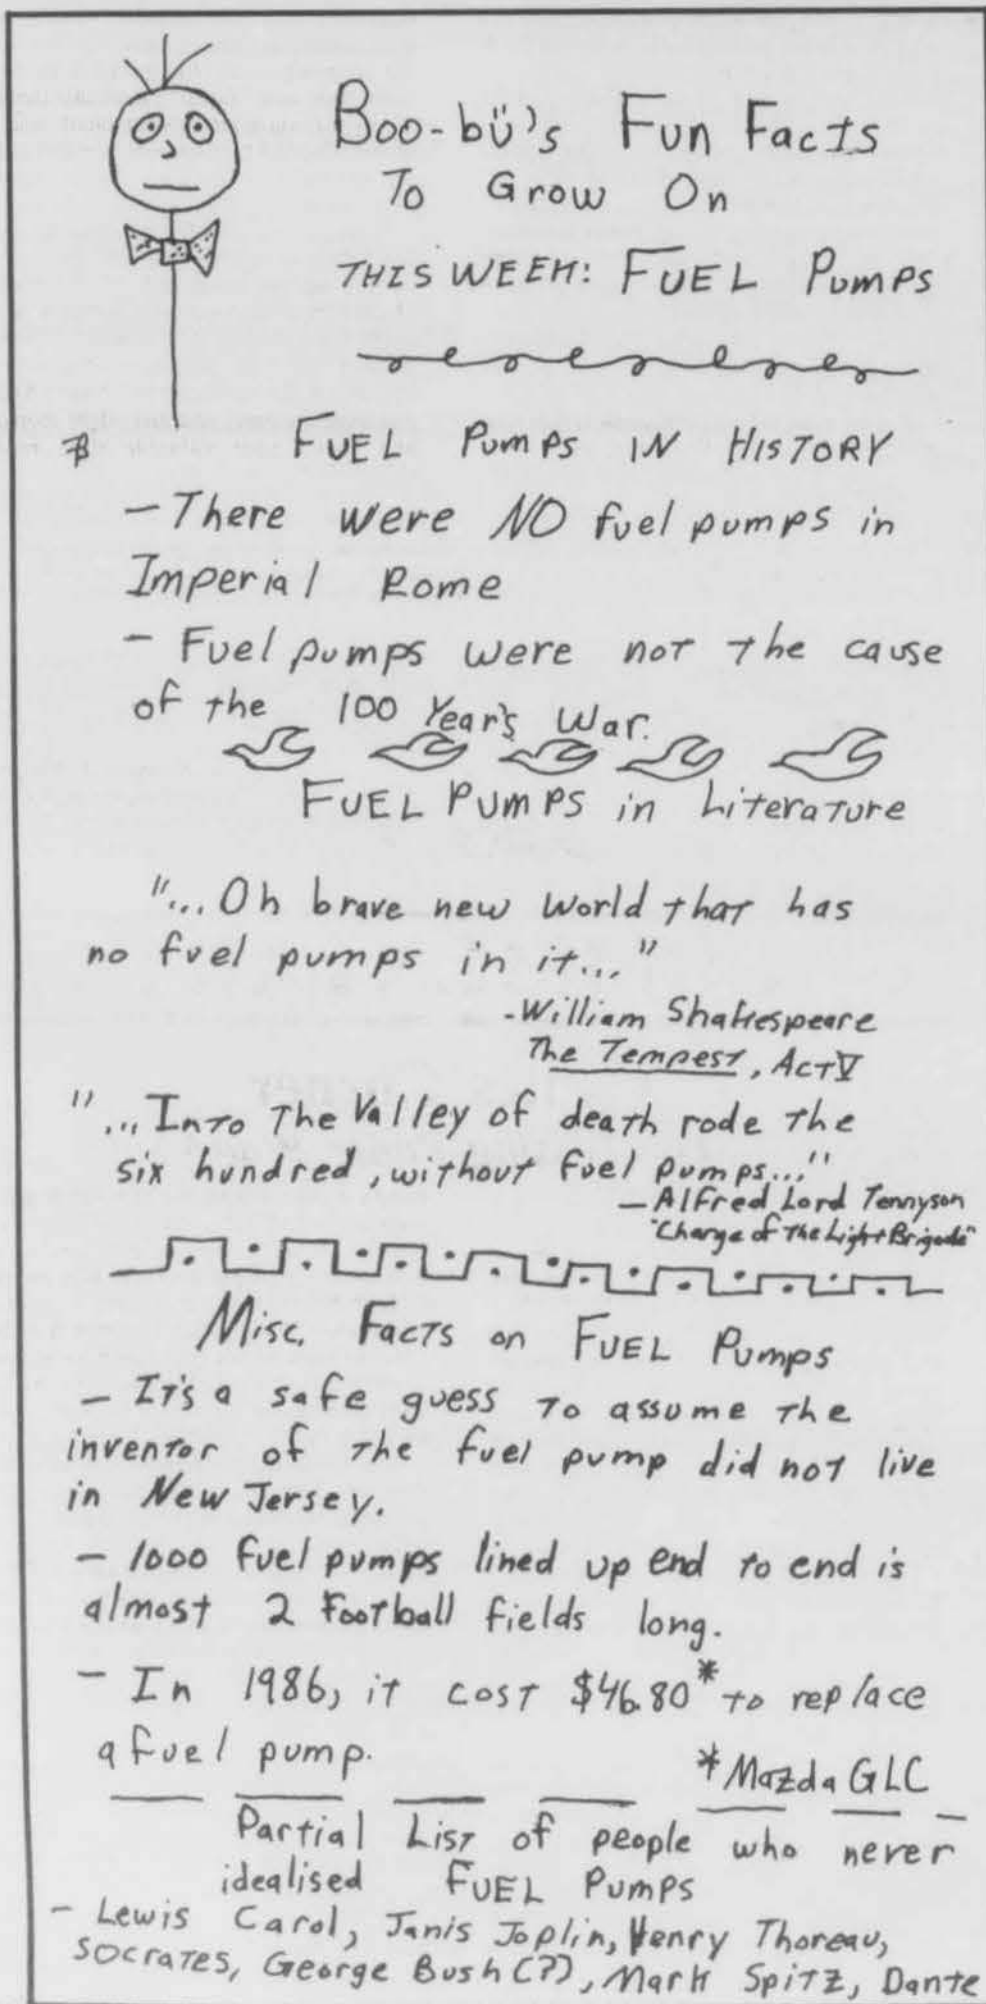 Boo-bü's Fun Facts
To Grow On
THIS WEEK: FUEL Pumps
FUEL Pumps IN HISTORY
- There were NO fuel pumps in
Imperial Rome
- Fuel pumps were not the cause
of the 100 Year's War.
FUEL PUMPS in Literature
"...Oh brave new world that has
no fuel pumps in it..."
-William Shakespeare
The Tempest, Act V
"...Into The Valley of death rode the
six hundred, without fuel pumps..."
- Alfred Lord Tennyson
"Charge of The Light Brigade"
Misc. Facts on FUEL Pumps
- It's a safe guess to assume the
inventor of the fuel pump did not live
in New Jersey.
- 1000 fuel pumps lined up end to end is
almost 2 Football fields long.
- In 1986, it cost $46.80* to replace
a fuel pump.
*Mazda GLC
Partial List of people who never
idealised FUEL Pumps
- Lewis Carol, Janis Joplin, Henry Thoreau,
Socrates, George Bush (?), Mark Spitz, Dante